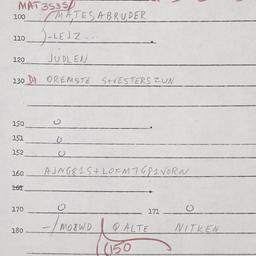 MAT3535
100 MATESABRUDER
110 )-LEIZ...
120 JUDLEN
130 DI OREMSTE S+VESTERSZUN
150 0
151 0
152 0
160 AJNG815+LOFM7GP1VORN
161
170 0 171 0
180 -/MOBWD QALTE NITKEN
(150